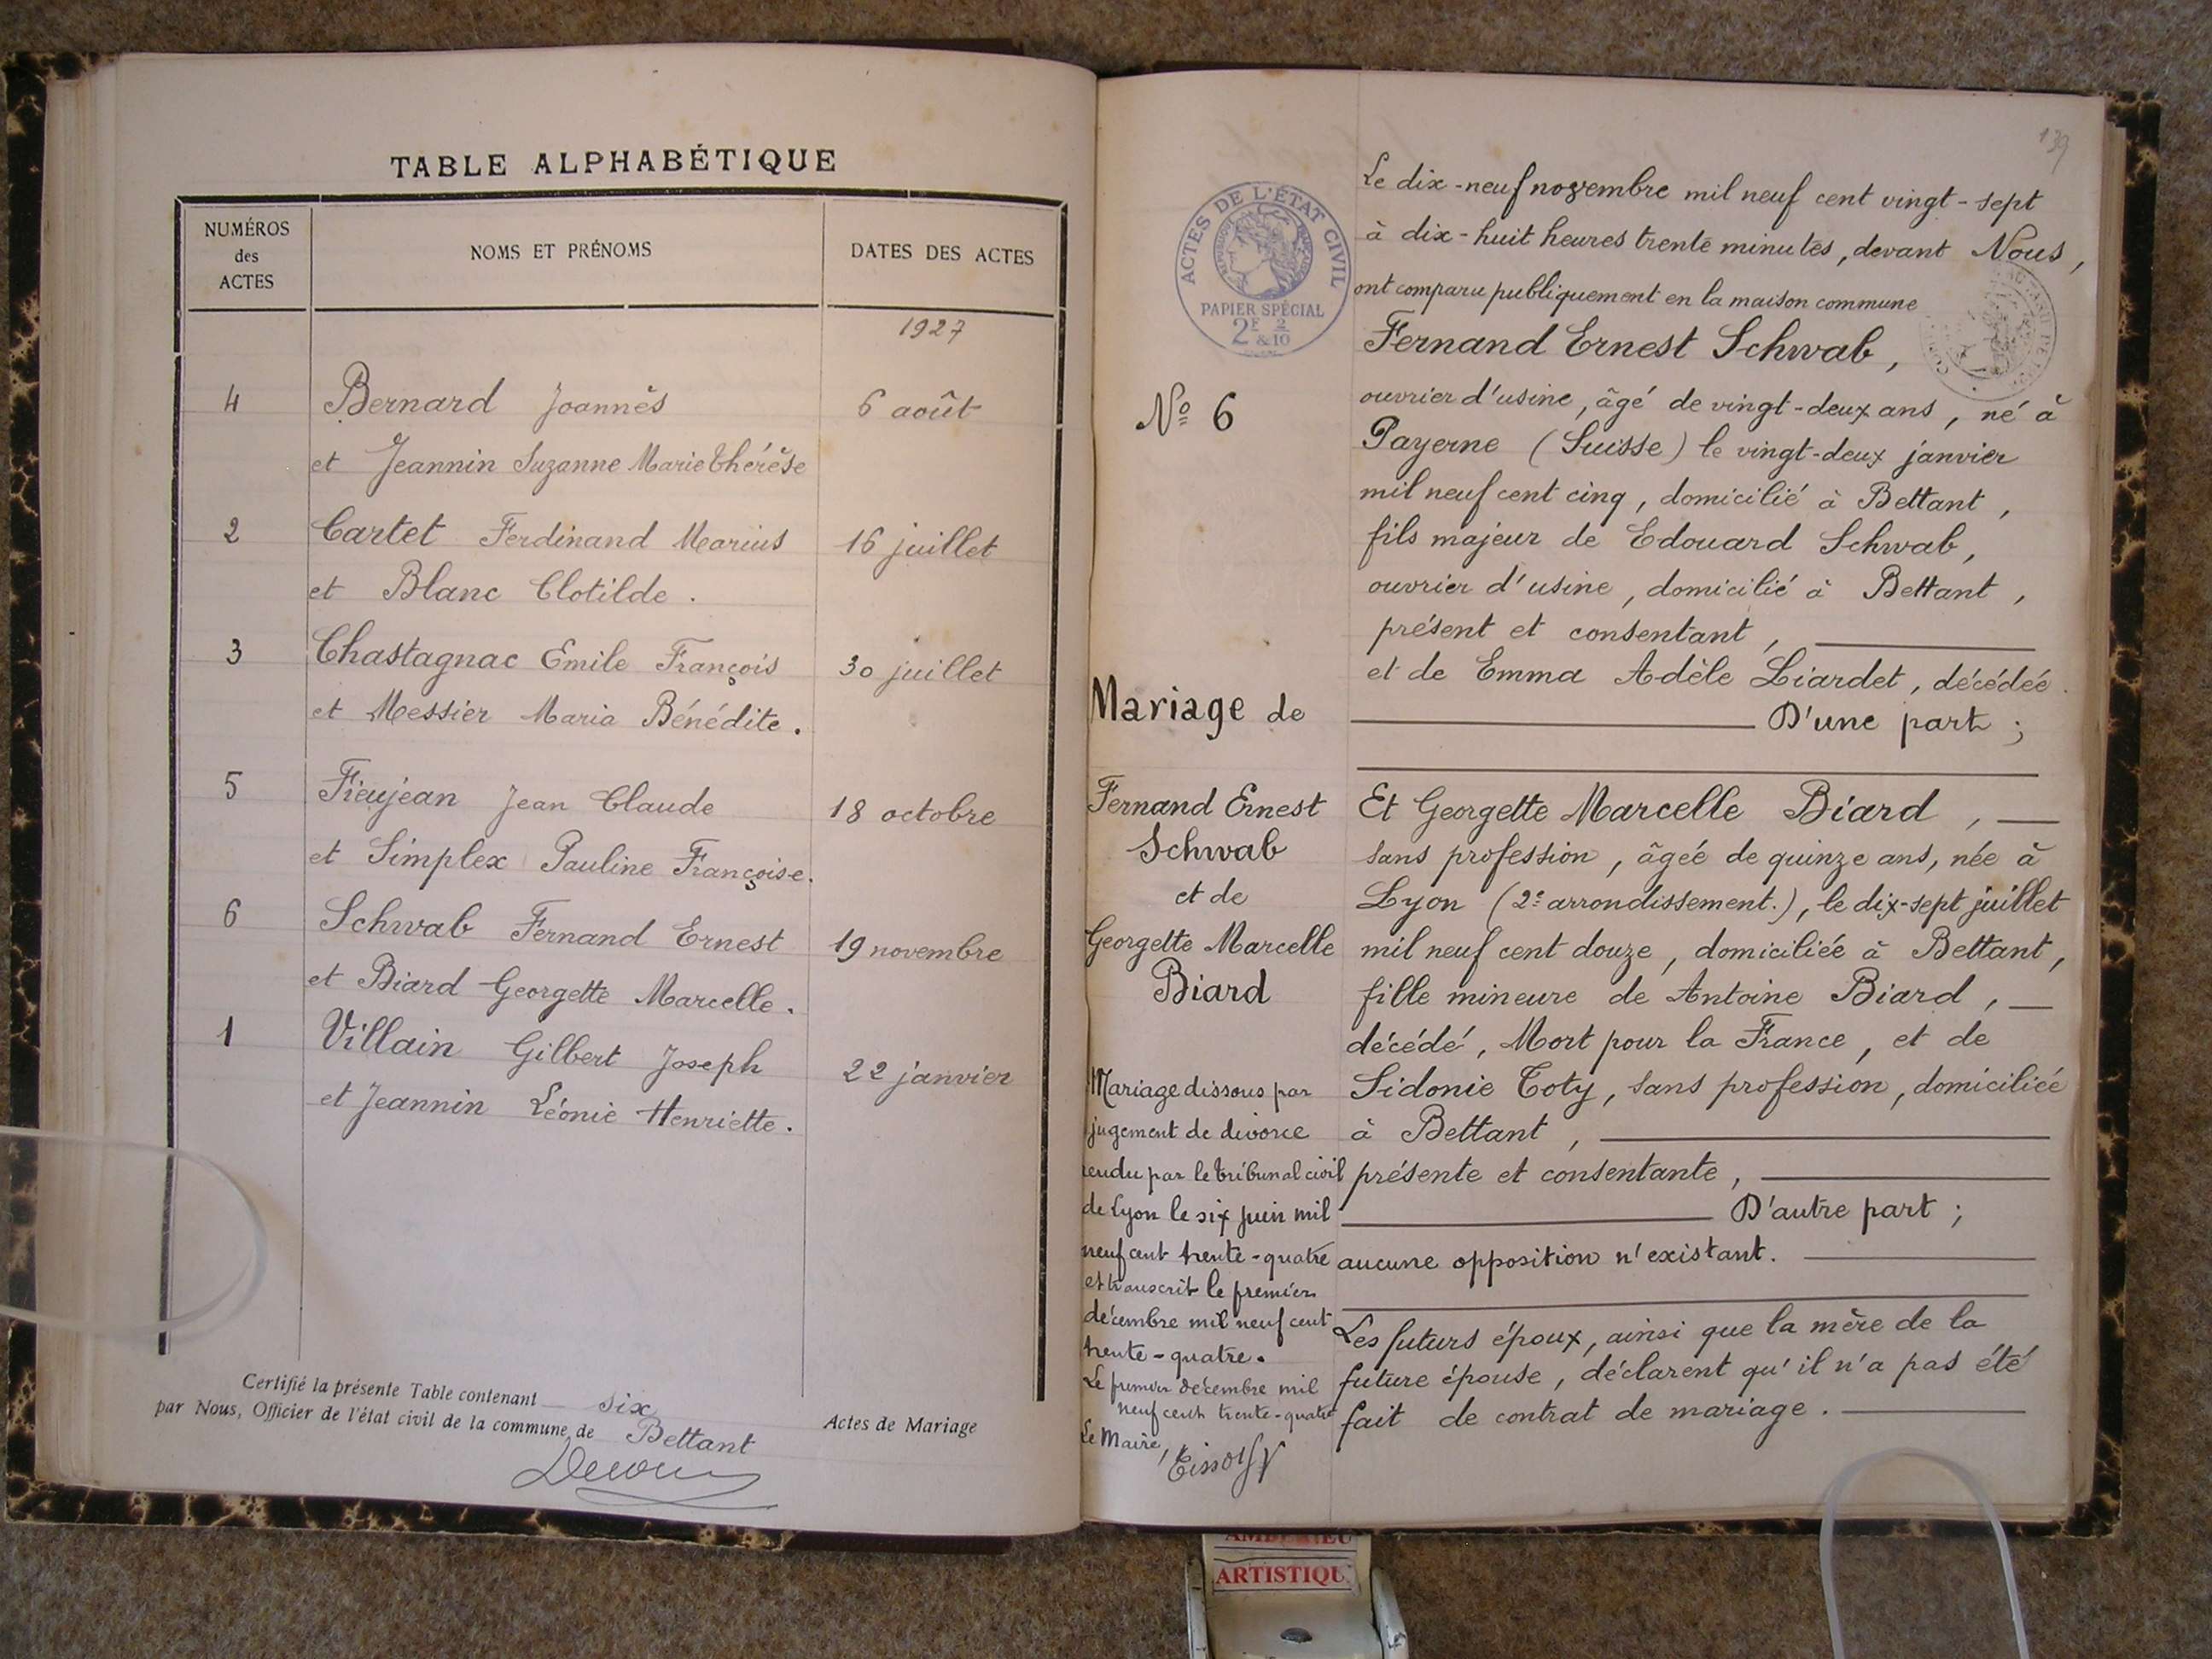 TABLE ALPHABÉTIQUE
NUMÉROS
des
ACTES
NOMS ET PRÉNOMS
DATES DES ACTES
1927
4 Bernard Joannès 6 août
et Jeannin Suzanne Marie Thérèse
2 Cartet Ferdinand Marius 16 juillet
et Blanc Clotilde.
3 Chastagnac Emile François 30 juillet
et Messier Maria Bénédite.
5 Fieujean Jean Claude 18 octobre
et Simplex Pauline Françoise.
6 Schwab Fernand Ernest 19 novembre
et Biard Georgette Marcelle.
1 Villain Gilbert Joseph 22 janvier
et Jeannin Léonie Henriette.
Certifié la présente Table contenant six Actes de Mariage
par Nous, Officier de l'état civil de la commune de Bettant
139
ACTES DE L'ÉTAT CIVIL
PAPIER SPÉCIAL
2F & 2/10
N° 6
Mariage de
Fernand Ernest
Schwab
et de
Georgette Marcelle
Biard
Mariage dissous par
jugement de divorce
rendu par le tribunal civil
de Lyon le six juin mil
neuf cent trente-quatre
et transcrit le premier
décembre mil neuf cent
trente-quatre.
Le premier décembre mil
neuf cent trente-quatre
Le Maire,
Le dix-neuf novembre mil neuf cent vingt-sept
à dix-huit heures trente minutes, devant Nous,
ont comparu publiquement en la maison commune
Fernand Ernest Schwab,
ouvrier d'usine, âgé de vingt-deux ans, né à
Payerne (Suisse) le vingt-deux janvier
mil neuf cent cinq, domicilié à Bettant,
fils majeur de Edouard Schwab,
ouvrier d'usine, domicilié à Bettant,
présent et consentant,
et de Emma Adèle Liardet, décédée.
D'une part;
Et Georgette Marcelle Biard,
sans profession, âgée de quinze ans, née à
Lyon (2e arrondissement.), le dix-sept juillet
mil neuf cent douze, domiciliée à Bettant,
fille mineure de Antoine Biard,
décédé, Mort pour la France, et de
Sidonie Toty, sans profession, domiciliée
à Bettant,
présente et consentante,
D'autre part;
aucune opposition n'existant.
Les futurs époux, ainsi que la mère de la
future épouse, déclarent qu'il n'a pas été
fait de contrat de mariage.
ARTISTIQU